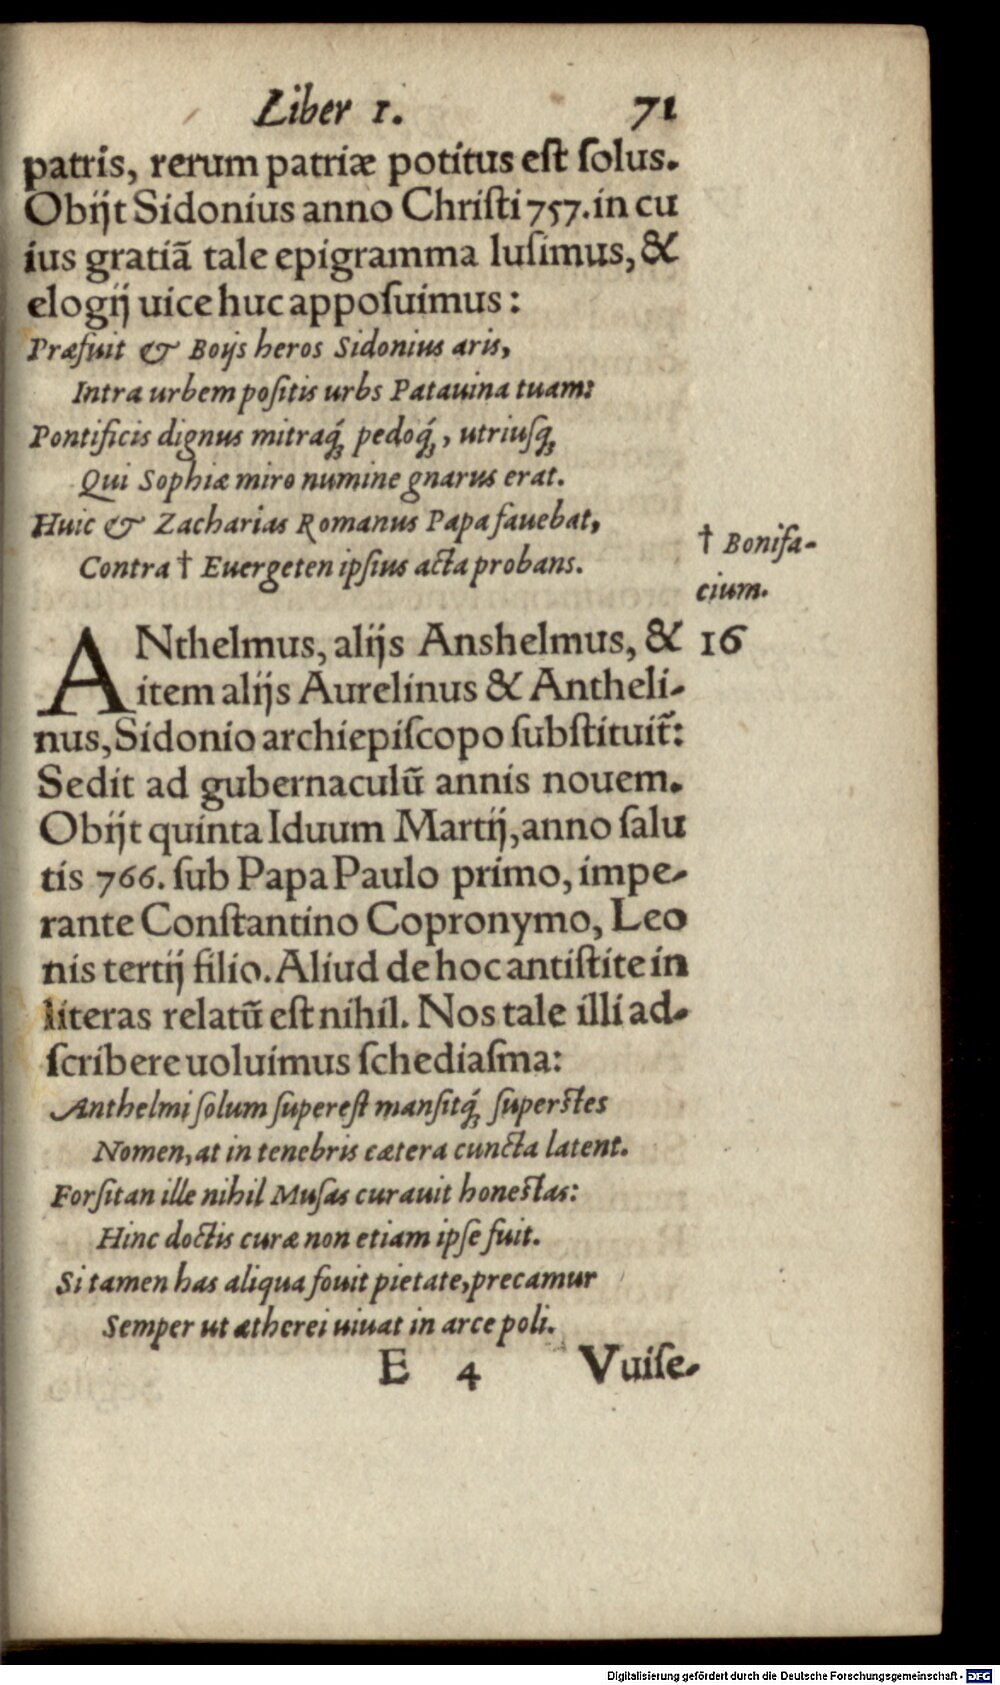 Liber 1. 71
patris, rerum patriæ potitus eſt ſolus.
Obijt Sidonius anno Chriſti 757. in cu
ius gratiã tale epigramma luſimus, &
elogij uice huc appoſuimus:
Præfuit & Boijs heros Sidonius aris,
Intra urbem poſitis urbs Patauina tuam:
Pontificis dignus mitraq́; pedoq́;, utriuſq;
Qui Sophiæ miro numine gnarus erat.
Huic & Zacharias Romanus Papa fauebat,
Contra † Euergeten ipſius acta probans.
† Bonifa-
cium.
ANthelmus, alijs Anshelmus, & 16
item alijs Aurelinus & Antheli-
nus, Sidonio archiepiſcopo ſubſtituit̃:
Sedit ad gubernaculũ annis nouem.
Obijt quinta Iduum Martij, anno ſalu
tis 766. ſub Papa Paulo primo, impe-
rante Conſtantino Copronymo, Leo
nis tertij filio. Aliud de hoc antiſtite in
literas relatũ eſt nihil. Nos tale illi ad-
ſcribere uoluimus ſchediaſma:
Anthelmi ſolum ſupereſt manſitq́; ſuperſtes
Nomen, at in tenebris cætera cuncta latent.
Forſitan ille nihil Muſas curauit honeſtas:
Hinc doctis curæ non etiam ipſe fuit.
Si tamen has aliqua fouit pietate, precamur
Semper ut ætherei uiuat in arce poli.
E 4 Vuiſe-
Digitalisierung gefördert durch die Deutsche Forschungsgemeinschaft - DFG